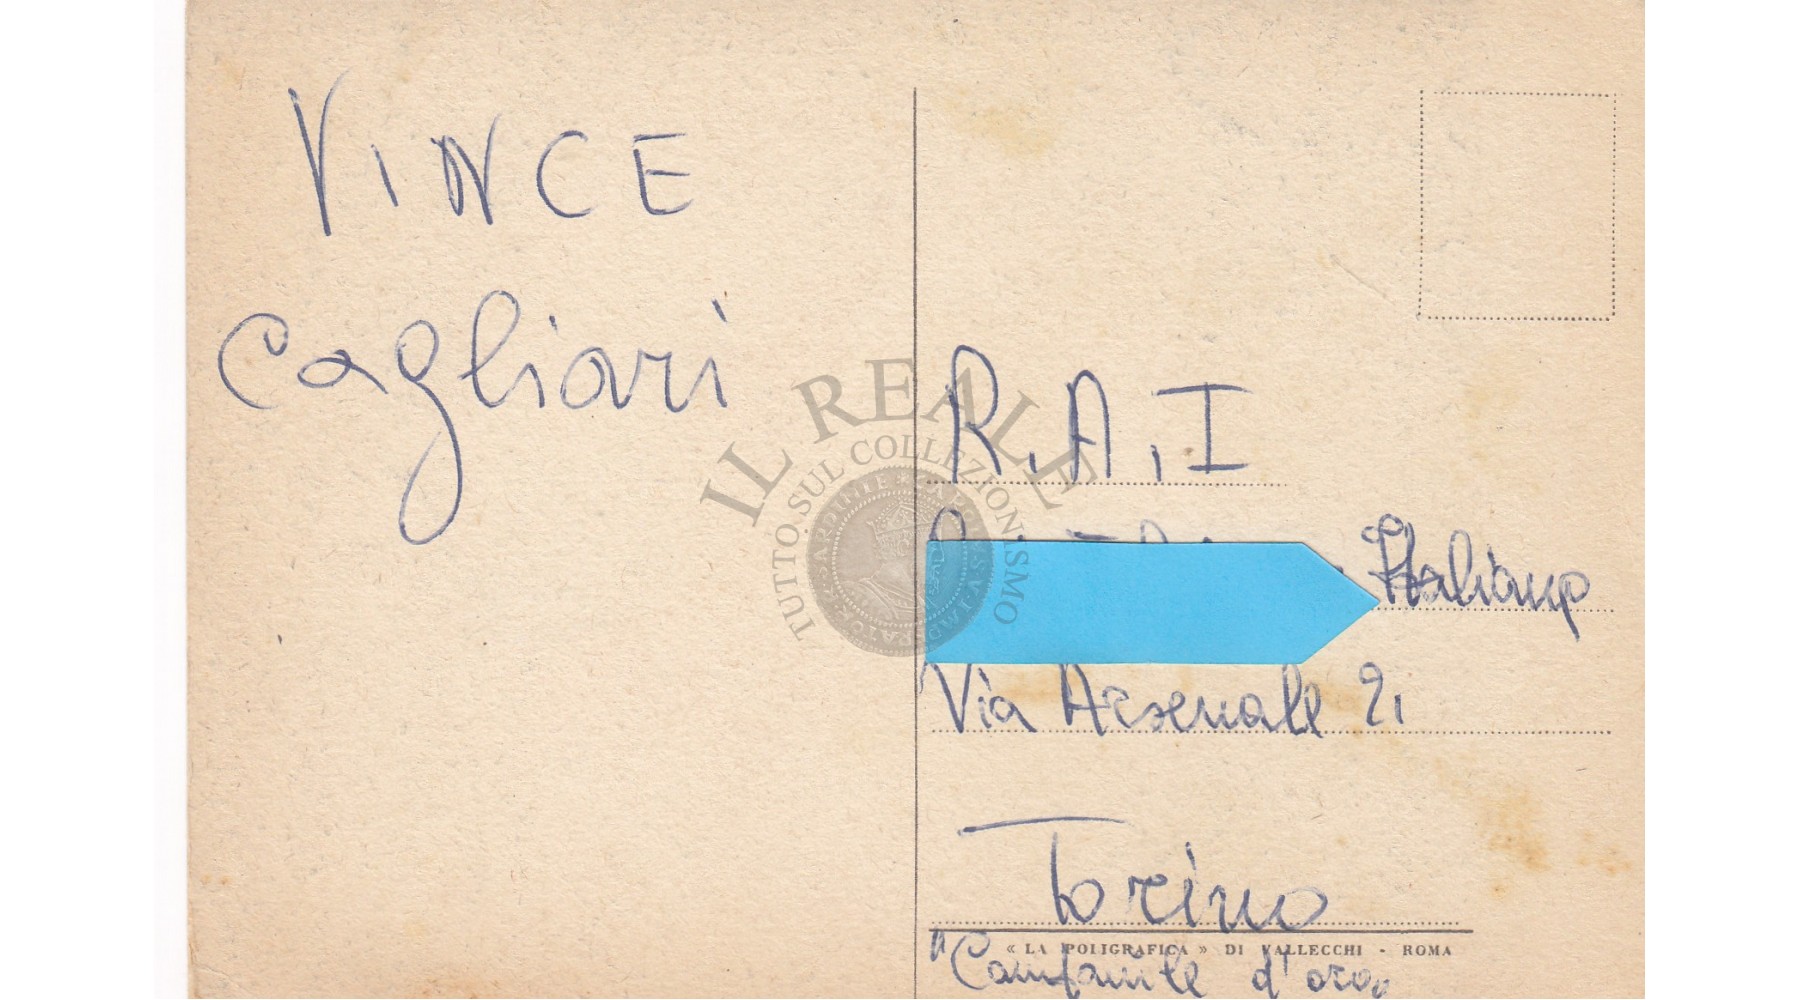 VINCE
Cagliari
R.A.I
Italiano
Via Arsenale 21
Torino
« LA POLIGRAFICA » DI VALLECCHI - ROMA
"Campanile d'oro"
IL REALE
TUTTO SUL COLLEZIONISMO